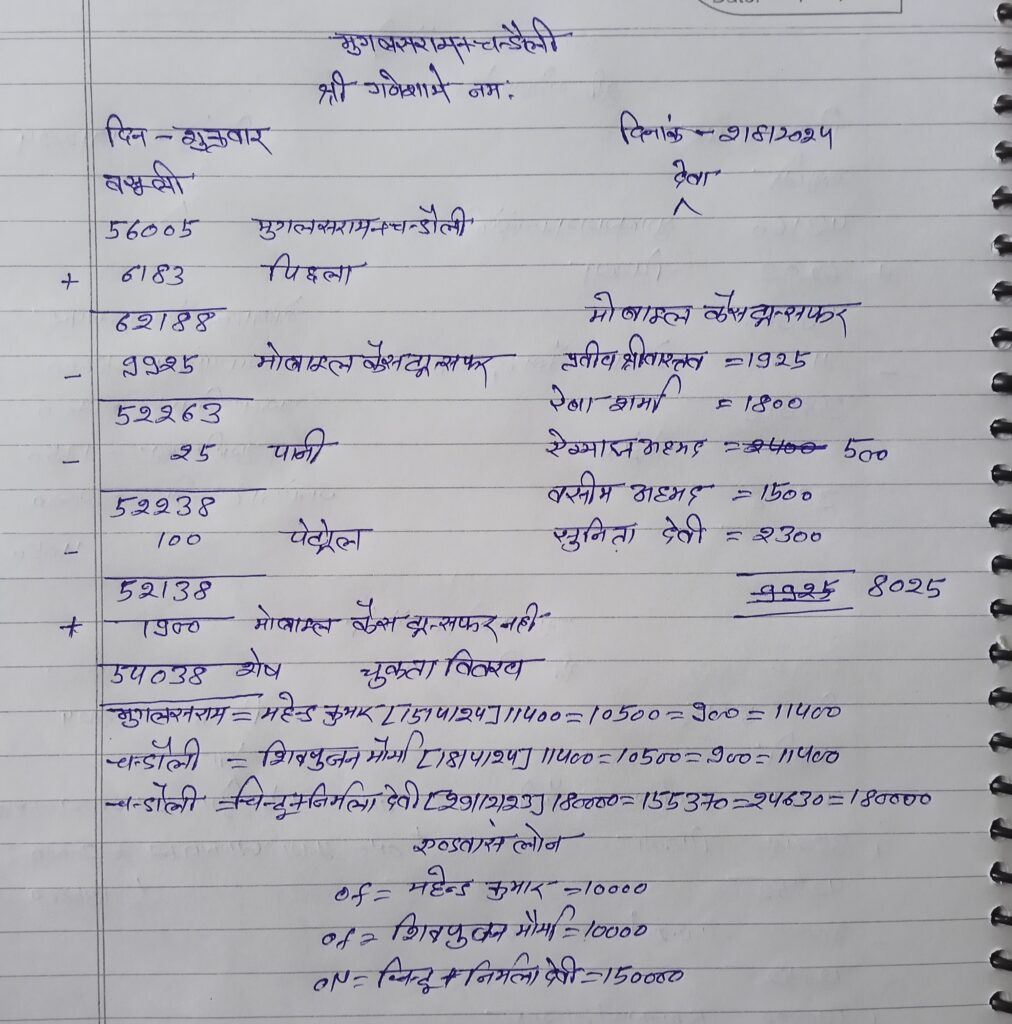 मुगलसराय+चन्दौली
श्री गणेशाय नमः
दिन - शुक्रवार दिनांक - 2/8/2024
वसूली देवा
56005 मुगलसराय+चन्दौली
+ 6183 पिछला
62188 मोबाइल कैस ट्रान्सफर
- 9925 मोबाइल कैस ट्रान्सफर श्रीवास्तव = 1925
52263 शर्मा = 1800
- 25 पानी अहमद = 2400 500
52238 वसीम अहमद = 1500
- 100 पेट्रोल सुनिता देवी = 2300
52138 9925 8025
+ 1900 मोबाइल कैस ट्रान्सफर नही
54038 शेष चुकता विवरण
मुगलसराय = महेन्द्र कुमार [15/4/24] 11400 = 10500 = 900 = 11400
चन्दौली = शिवपुजन मौर्या [18/4/24] 11400 = 10500 = 900 = 11400
चन्दौली = चिन्टू+निर्मला देवी [29/12/23] 180000 = 155370 = 24630 = 180000
एडवांस लोन
of = महेन्द्र कुमार = 10000
of = शिवपुजन मौर्या = 10000
ON = चिन्टू + निर्मला देवी = 150000